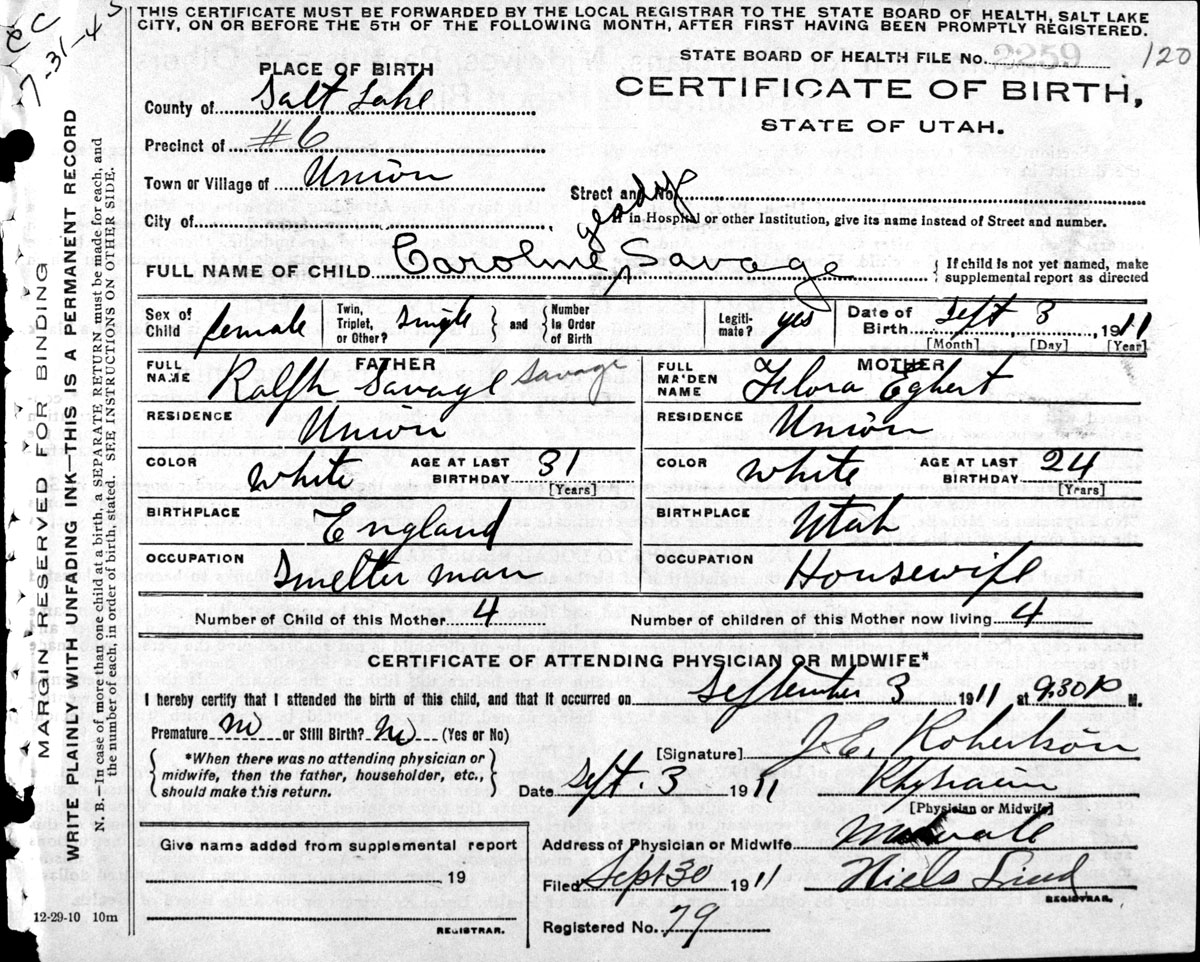 CC
7-31-45
THIS CERTIFICATE MUST BE FORWARDED BY THE LOCAL REGISTRAR TO THE STATE BOARD OF HEALTH, SALT LAKE
CITY, ON OR BEFORE THE 5TH OF THE FOLLOWING MONTH, AFTER FIRST HAVING BEEN PROMPTLY REGISTERED.
STATE BOARD OF HEALTH FILE No. 120
CERTIFICATE OF BIRTH,
STATE OF UTAH.
PLACE OF BIRTH
County of Salt Lake
Precinct of #6
Town or Village of Union
Street and No.
City of
If in Hospital or other Institution, give its name instead of Street and number.
FULL NAME OF CHILD Caroline Savage
{ If child is not yet named, make
supplemental report as directed
Sex of Child female
Twin, Triplet, or Other? Single } and { Number in Order of Birth
Legiti-mate? yes
Date of Birth Sept 3, 1911
[Month] [Day] [Year]
FATHER
FULL NAME Ralph Savage Savage
MOTHER
FULL MAIDEN NAME Flora Egbert
RESIDENCE Union
RESIDENCE Union
COLOR White AGE AT LAST BIRTHDAY 31 [Years]
COLOR White AGE AT LAST BIRTHDAY 24 [Years]
BIRTHPLACE England
BIRTHPLACE Utah
OCCUPATION Smelter man
OCCUPATION Housewife
Number of Child of this Mother 4
Number of children of this Mother now living 4
CERTIFICATE OF ATTENDING PHYSICIAN OR MIDWIFE*
I hereby certify that I attended the birth of this child, and that it occurred on September 3 1911 at 9.30 P M.
Premature no or Still Birth? no (Yes or No)
{ *When there was no attending physician or
midwife, then the father, householder, etc.,
should make this return. }
[Signature] J. E. Robertson
Date Sept. 3 1911 Physician
[Physician or Midwife]
Address of Physician or Midwife Midvale
Filed Sept 30 1911 Niels Lind
REGISTRAR.
Registered No. 79
Give name added from supplemental report
19
REGISTRAR.
12-29-10 10m
MARGIN RESERVED FOR BINDING
WRITE PLAINLY WITH UNFADING INK—THIS IS A PERMANENT RECORD
N. B.—In case of more than one child at a birth, a SEPARATE RETURN must be made for each, and
the number of each, in order of birth, stated. SEE INSTRUCTIONS ON OTHER SIDE.